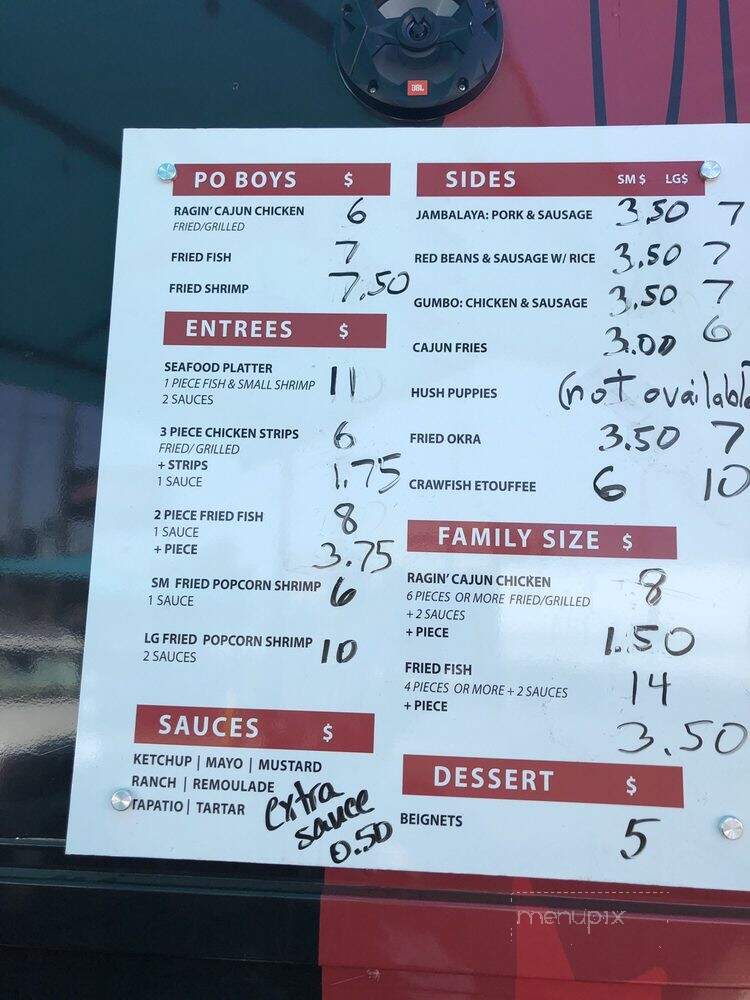 JBL
PO BOYS $
RAGIN' CAJUN CHICKEN 6
FRIED/GRILLED
FRIED FISH 7
FRIED SHRIMP 7.50
ENTREES $
SEAFOOD PLATTER 11
1 PIECE FISH & SMALL SHRIMP
2 SAUCES
3 PIECE CHICKEN STRIPS 6
FRIED/ GRILLED
+ STRIPS 1.75
1 SAUCE
2 PIECE FRIED FISH 8
1 SAUCE
+ PIECE 3.75
SM FRIED POPCORN SHRIMP 6
1 SAUCE
LG FRIED POPCORN SHRIMP 10
2 SAUCES
SAUCES $
KETCHUP | MAYO | MUSTARD
RANCH | REMOULADE
TAPATIO | TARTAR
extra
sauce
0.50
SIDES SM $ LG$
JAMBALAYA: PORK & SAUSAGE 3.50 7
RED BEANS & SAUSAGE W/ RICE 3.50 7
GUMBO: CHICKEN & SAUSAGE 3.50 7
CAJUN FRIES 3.00 6
HUSH PUPPIES (not available
FRIED OKRA 3.50 7
CRAWFISH ETOUFFEE 6 10
FAMILY SIZE $
RAGIN' CAJUN CHICKEN 8
6 PIECES OR MORE FRIED/GRILLED
+ 2 SAUCES
+ PIECE 1.50
FRIED FISH 14
4 PIECES OR MORE + 2 SAUCES
+ PIECE 3.50
DESSERT $
BEIGNETS 5
menupix